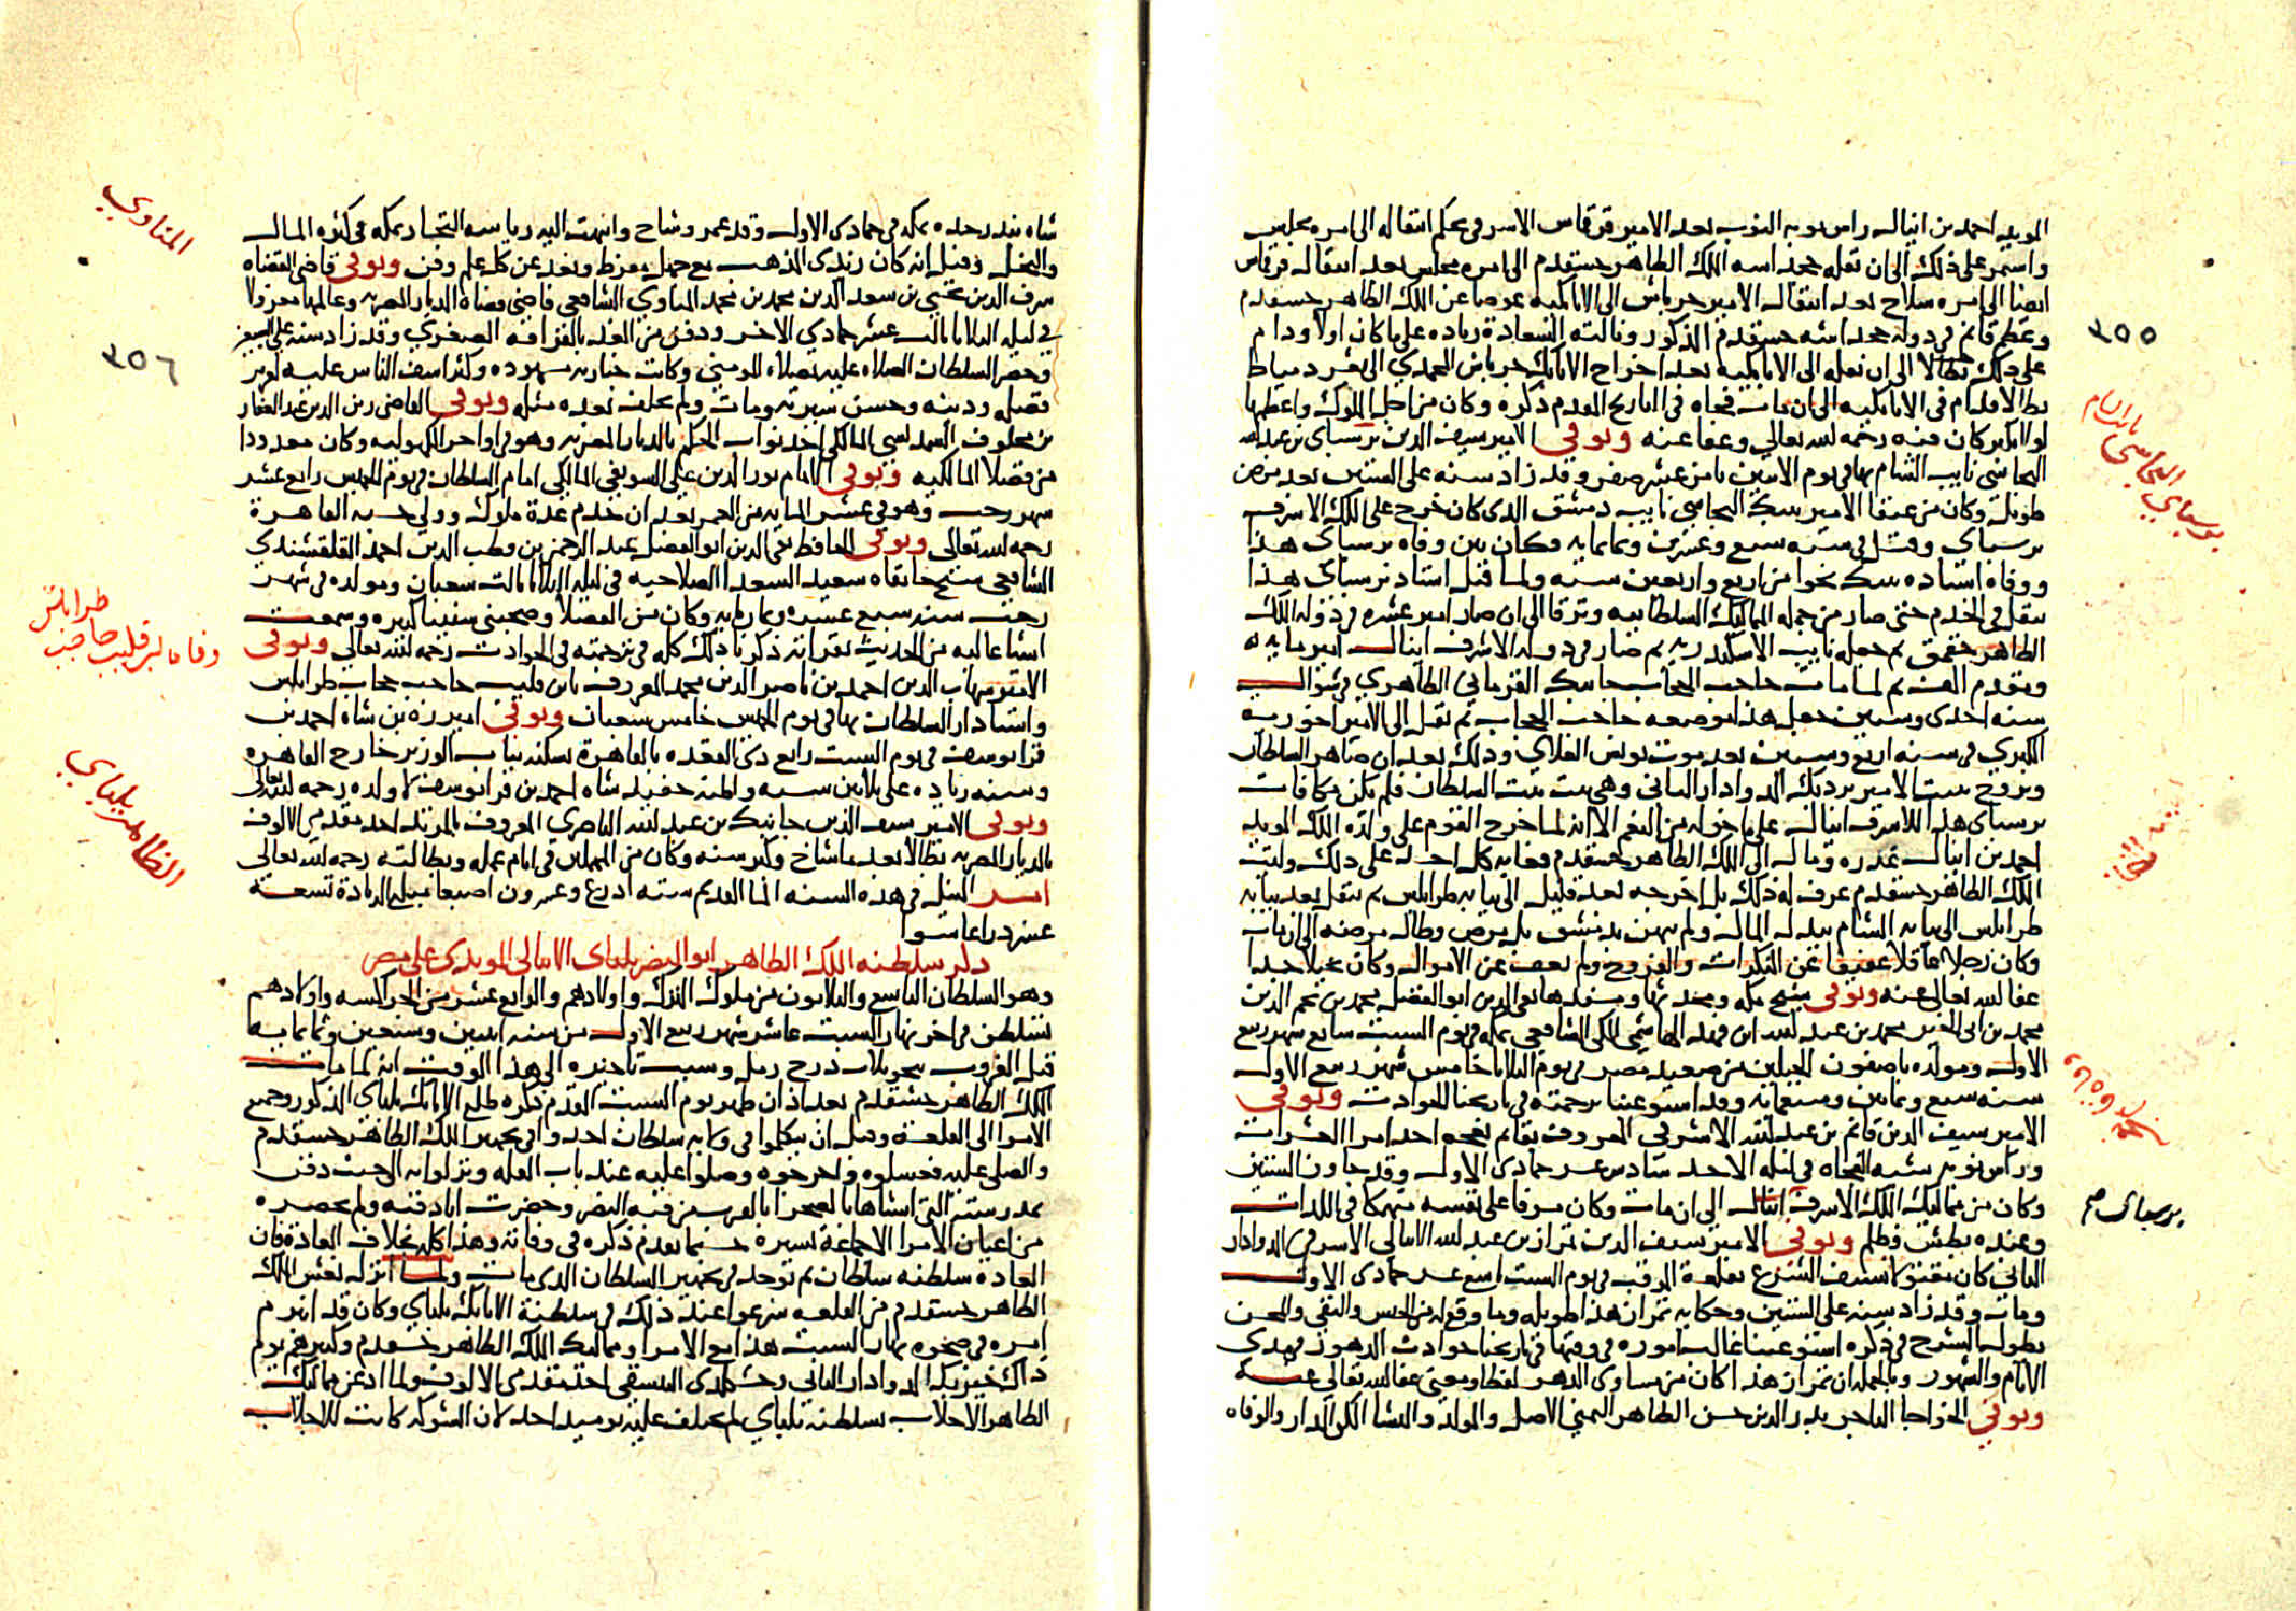 المويد احمد بن اينال راس نوبه النوب بعد الامير قرقماس الاشرفي بحكم انتقاله الى امره مجلس
واستمر على ذلك الى ان نقله خجداشه الملك الظاهر خشقدم الى امره مجلس بعد انتقال قرقماس
ايضا الى امره سلاح بعد انتقال الامير جرباش الى الاتابكيه عوضا عن الملك الظاهر خشقدم
وعظم قانم في دوله خجداشه خشقدم المذكور ونالته السعادة زياده على ما كان اولا ودام
على ذلك الى ان نقله الى الاتابكيه بعد اخراج الاتابك جرباش المحمدي الى ثغر دمياط
الى ان مات فجاه في التاريخ المقدم ذكره وكان من اجل الملوك واعظمها
لولا كبر كان فيه رحمه الله تعالى وعفا عنه وتوفي الامير سيف الدين برسباي بن عبد الله
البجاسي نايب الشام بها في يوم الاثنين ثامن عشر صفر وقد زاد سنه على الستين بعد مرض
طويل وكان من عتقا الامير تنبك البجاسي نايب دمشق الذي كان خرج على الملك الاشرف
برسباي وقتل في سنه سبع وعشرين وثمانمايه فكان بين وفاه برسباي هذا
ووفاه استاده تنبك نحوا من اربع واربعين سنه ولما قتل استاد برسباي هذا
تنقل في الخدم حتى صار من جمله المماليك السلطانيه وترقا الى ان صار امير عشره في دوله الملك
الظاهر جقمق ثم جعله نايب الاسكندريه ثم صار في دوله الاشرف اينال امير مايه
ومقدم الف ثم لما مات حاجب الحجاب جانبك القرماني الظاهري في شوال
سنه احدى وستين جعل هذا موضعه حاجب الحجاب ثم نقل الى الامير اخوريه
الكبرى في سنه اربع وستين بعد موت يونس العلاي وذلك بعد ان صاهر السلطان
وتزوج بنت الامير بردبك الدوادار الثاني وهي بنت بنت السلطان فلم يكن مكافات
برسباي هذا للاشرف اينال على ما خوله من النعم الا انه لما خرج القوم على ولده الملك المويد
احمد بن اينال غدره ومال الى الملك الظاهر خشقدم فعابه كل احد على ذلك وليت
الملك الظاهر خشقدم عرف له ذلك بل اخرجه بعد قليل الى نيابه طرابلس ثم نقل بعد نيابه
طرابلس الى نيابه الشام ببذله المال ولم يتهن بدمشق بل مرض وطال مرضه الى ان مات
وكان رجلا عاقلا عفيفا عن المنكرات والفروج ولم يعف عن الاموال وكان بخيلا جدا
عفا الله تعالى عنه وتوفي شيخ مكه ومحدثها ومسندها تقي الدين ابو الفضل محمد بن نجم الدين
محمد بن ابي الخير محمد بن عبد الله ابن فهد الهاشمي المكي الشافعي بمكه في يوم السبت سابع شهر ربيع
الاول ومولده باصفون الجبلين من صعيد مصر في يوم الثلاثا خامس شهر ربيع الاول
سنه سبع وثمانين وسبعمايه وقد استوعبنا ترجمته في تاريخنا الحوادث وتوفي
الامير سيف الدين قانم بن عبد الله الاشرفي المعروف بقانم نعجه احد امرا العشرات
وراس نوبه شبه الفجاه في ليله الاحد سادس عشر جمادى الاول وقد جاوز الستين
وكان من مماليك الملك الاشرف اينال الى ان مات وكان مسرفا على نفسه منهمكا في اللذات
وعنده بطش وظلم وتوفي الامير سيف الدين تمراز بن عبد الله الاينالي الاشرفي الدوادار
الثاني كان بسيف الشرع بقلعة المرقب في يوم السبت سابع عشر جمادى الاول
ومات وقد زاد سنه على الستين وحكايه تمراز هذا طويله وما وقع له من الحبس والنفي والمحن
يطول الشرح في ذكره استوعبنا غالب اموره في وقتها في تاريخنا حوادث الدهور في مدى
الايام والشهور وبالجمله ان تمراز هذا كان من مساوي الدهر لفظا ومعنى عفا الله تعالى عنه
وتوفي الخواجا التاجر بدر الدين حسن الطاهر اليمني الاصل والمولد والمنشا المكي الدار والوفاه
٣٥٥
برسباي البجاسي نايب الشام
برسباي
شاه بندر جده بمكه في جمادى الاول وقد عمر وشاخ وانتهت اليه رياسه التجار بمكه في كثره المال
والبخل وقيل انه كان زيدي المذهب مع جهل مفرط وبعد عن كل علم وفن وتوفي قاضي القضاه
شرف الدين يحيى بن سعد الدين محمد بن محمد المناوي الشافعي قاضي قضاه الديار المصريه وعالمها معزولا
في ليله الثلاثا ثالث عشر جمادي الاخر ودفن من الغد بالقرافه الصغرى وقد زاد سنه على السبعين
وحضر السلطان الصلاه عليه بمصلاه المومني وكانت جنازته مشهوده وكثر اسف الناس عليه لغزير
فضله ودينه وحسن سيرته ومات ولم يخلف بعده مثله وتوفي القاضي زين الدين عبد الغفار
بن مخلوف السمديسي المالكي احد نواب الحكم بالديار المصريه وهو في اواخر الكهوليه وكان معدودا
من فضلا المالكيه وتوفي الامام نور الدين علي السويفي المالكي امام السلطان في يوم الخميس رابع عشر
شهر رجب وهو في عشر المايه من العمر بعد ان خدم عدة ملوك وولي حسبه القاهرة
رحمه الله تعالى وتوفي الحافظ تقي الدين ابو الفضل عبد الرحمن بن قطب الدين احمد القلقشندي
الشافعي شيخ خانقاه سعيد السعدا الصلاحيه في ليله الثلاثا ثالث شعبان ومولده في شهر
رجب سنه سبع عشره وثمانمايه وكان من الفضلا وصحبني سنينا كثيره وسمعت
اشيا عاليه من الحديث بقراته ذكرنا ذلك كله في ترجمته في الحوادث رحمه الله تعالى وتوفي
الامير شهاب الدين احمد بن ناصر الدين محمد المعروف بابن قليب حاجب حجاب طرابلس
واستادار السلطان بها في يوم الخميس خامس شعبان وتوفي اميرزه بن شاه احمد بن
قرا يوسف في يوم السبت رابع ذي القعده بالقاهرة بسكنه بباب الوزير خارج القاهره
وسنه زياده على ثلاثين سنه واظنه حفيد شاه احمد بن قرا يوسف لا ولده رحمه الله تعالى
وتوفي الامير سيف الدين جانبك بن عبد الله الناصري المعروف بالمرتد احد مقدمي الالوف
بالديار المصريه بطالا بعد ما شاخ وكبر سنه وكان من المهملين في ايام عمله وبطالته رحمه الله تعالى
امر النيل في هذه السنه الما القديم سته اذرع وعشرون اصبعا مبلغ الزيادة تسعة
عشر ذراعا سوا
ذكر سلطنه الملك الظاهر ابو النصر يلباي الاينالي المويدي على مصر
وهو السلطان التاسع والثلاثون من ملوك الترك واولادهم والرابع عشر من الجراكسه واولادهم
تسلطن في اخر نهار السبت عاشر شهر ربيع الاول من سنه اثنين وسبعين وثمانمايه
قبل الغروب بنحو ثلاث درج رمل وسبب تاخيره الى هذا الوقت انه لما مات
الملك الظاهر خشقدم بعد اذان ظهر يوم السبت المقدم ذكره طلع الاتابك يلباي المذكور وجميع
الامرا الى القلعة وقبل ان يتكلموا في ولايه سلطان اخذوا في تجهيز الملك الظاهر خشقدم
والصلاه عليه فغسلوه واخرجوه وصلوا عليه عند باب القله ونزلوا به الى حيث دفن
بمدرسته التي انشاها بالصحرا بالقرب من قبه النصر وحضرت انا دفنه ولم يحضره
من اعيان الامرا الا جماعة يسيره حسبما تقدم ذكره في وفاته وهذا كله بخلاف العادة فان
العاده سلطنه سلطان ثم توخذ في تجهيز السلطان الذي مات ولما انزل نعش الملك
الظاهر خشقدم من القلعه شرعوا عند ذلك في سلطنة الاتابك يلباي وكان قد ابرم
امره في ضحوه نهار السبت هذا مع الامرا ومماليك الملك الظاهر خشقدم وكبيرهم يوم
ذاك خيربك الدوادار الثاني واحد مقدمي الالوف ولما اذعن مماليك
الظاهر الاجلاب بسلطنة يلباي لم يختلف عليه يوميذ احد لان الشوكه كانت للاجلاب
المناوي
٣٥٦
وفاه ابن قليب حاجب طرابلس
الظاهر يلباي